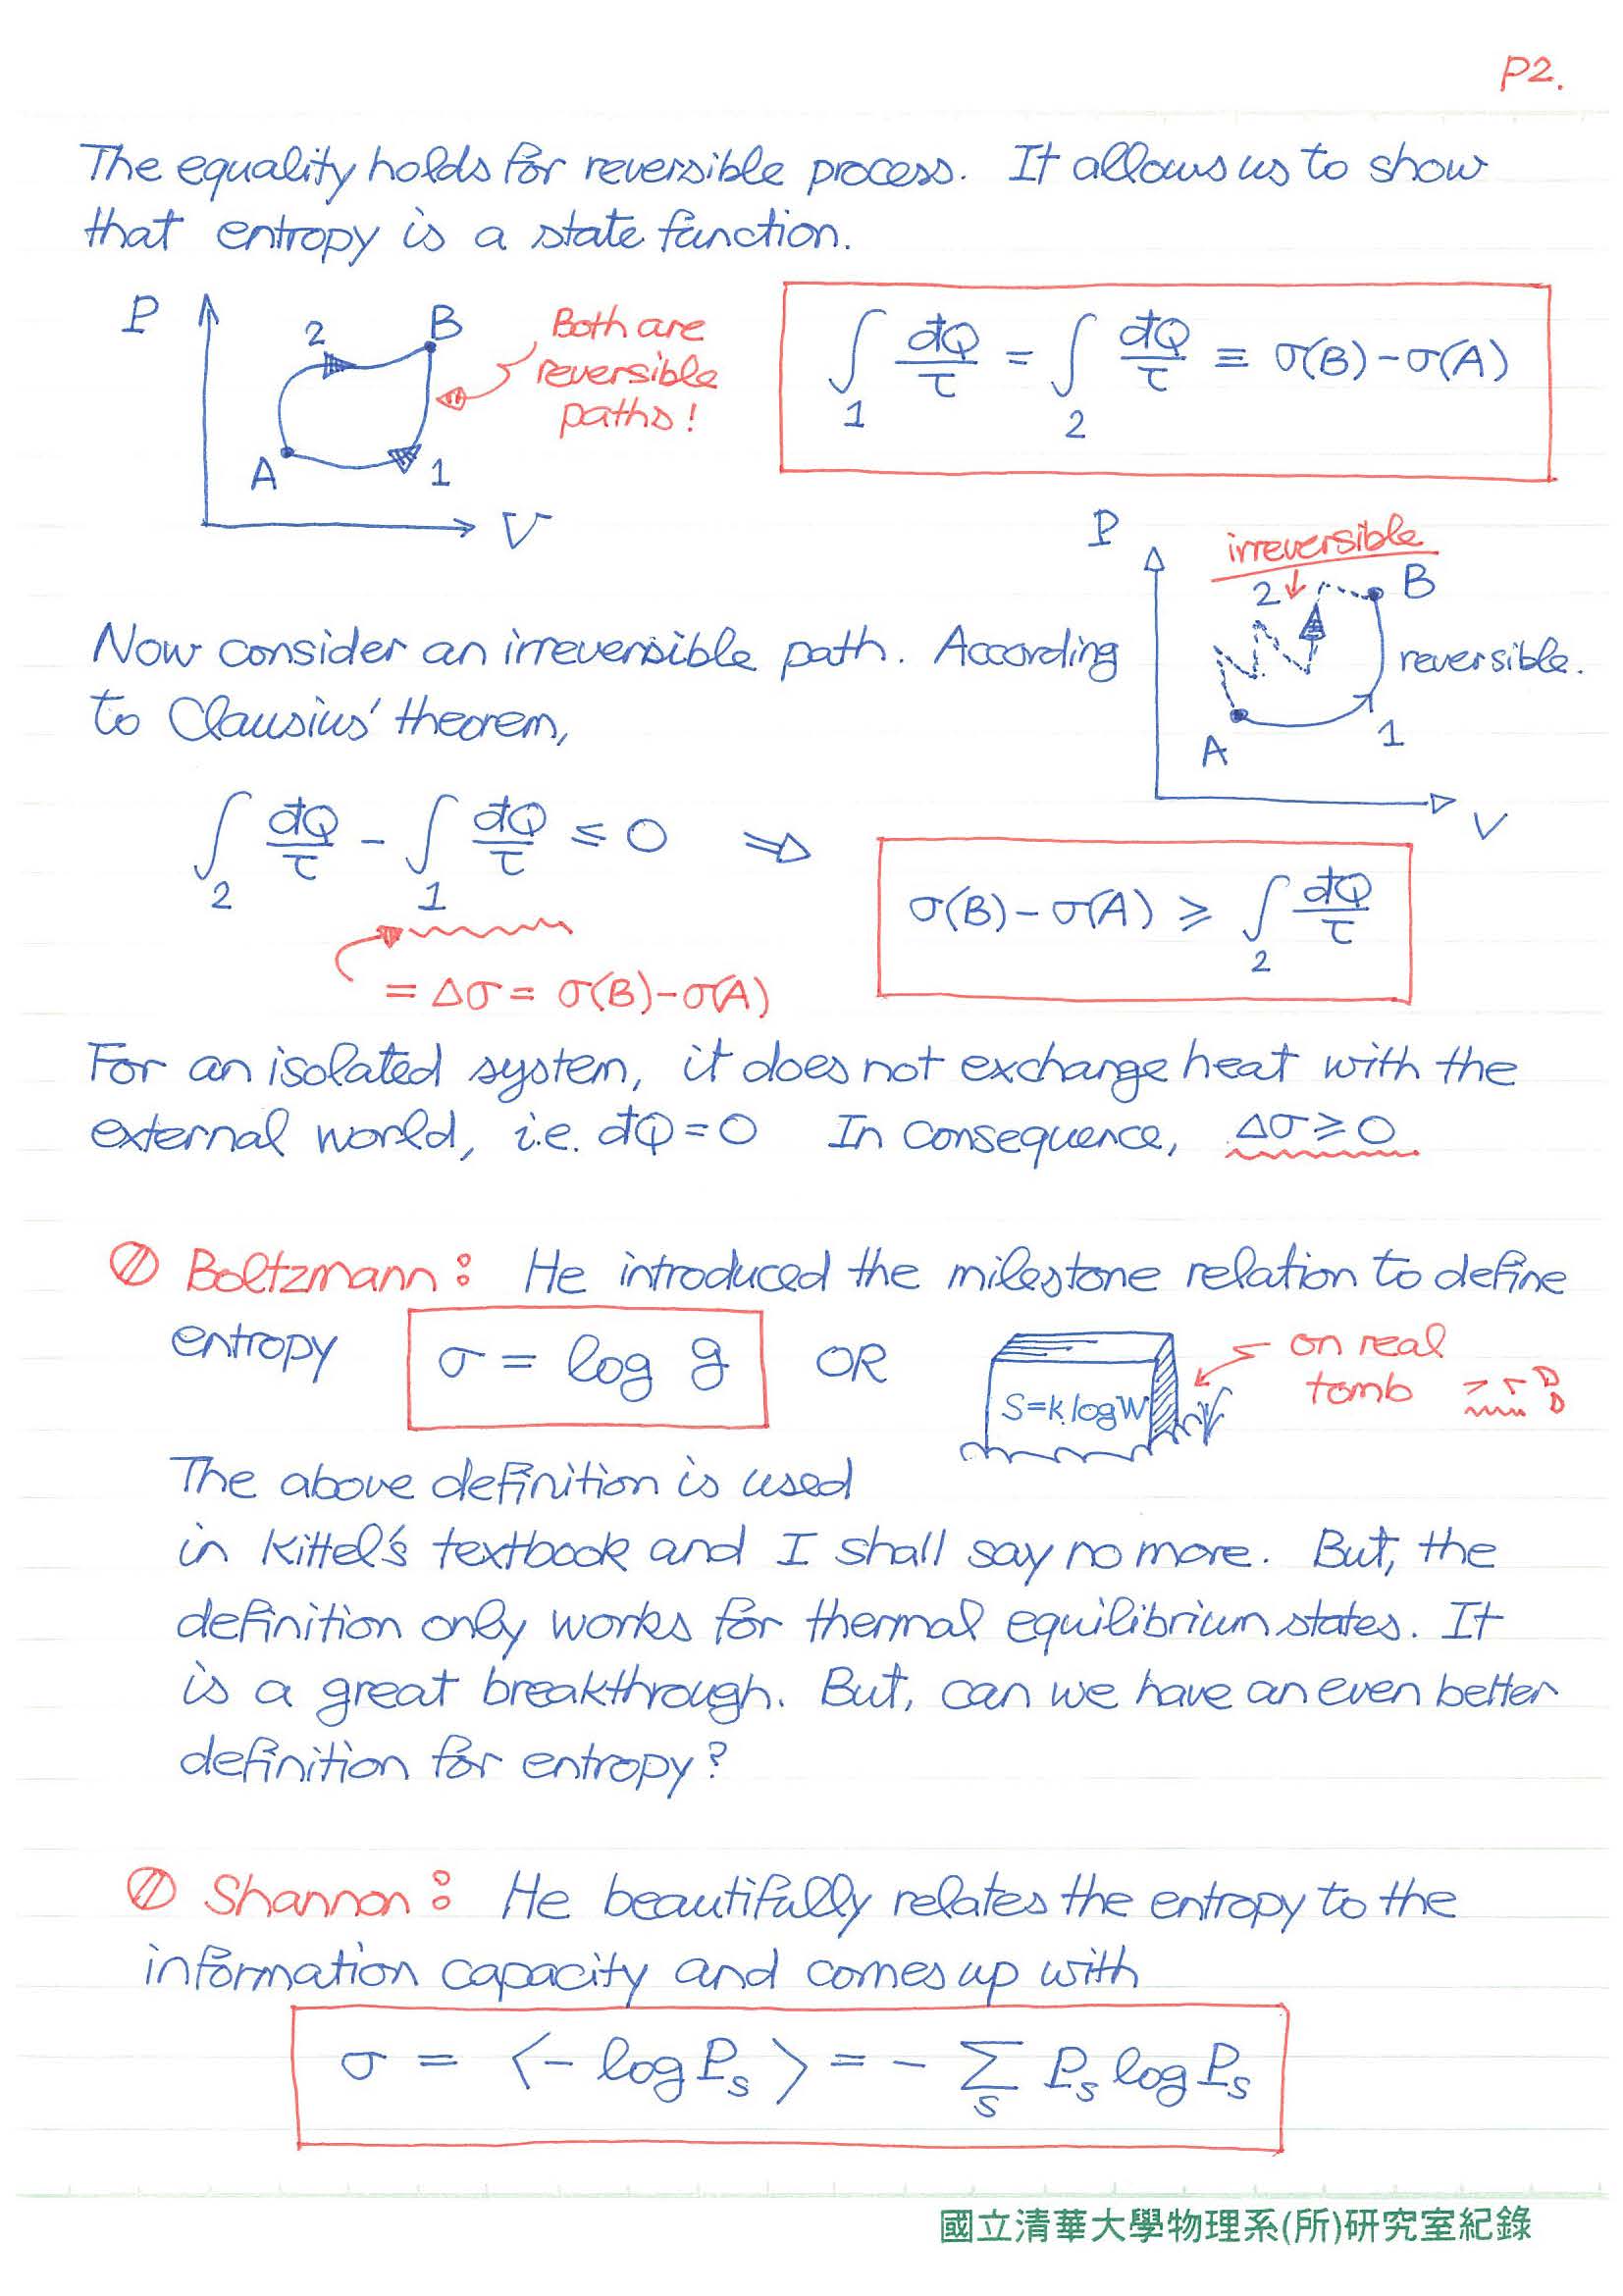 P2.
The equality holds for reversible process. It allows us to show
that entropy is a state function.
P
2
B
A
1
V
Both are
reversible
paths!
∫₁ đQ/τ = ∫₂ đQ/τ ≡ σ(B)-σ(A)
P
irreversible
2
B
reversible.
A
1
V
Now consider an irreversible path. According
to Clausius' theorem,
∫₂ đQ/τ - ∫₁ đQ/τ ≤ 0 ⇒ σ(B)-σ(A) ≥ ∫₂ đQ/τ
= Δσ = σ(B)-σ(A)
For an isolated system, it does not exchange heat with the
external world, i.e. đQ=0 In consequence, Δσ≥0
Boltzmann: He introduced the milestone relation to define
entropy σ = log g OR
S=k logW
on real
tomb
The above definition is used
in Kittel's textbook and I shall say no more. But, the
definition only works for thermal equilibrium states. It
is a great breakthrough. But, can we have an even better
definition for entropy?
Shannon: He beautifully relates the entropy to the
information capacity and comes up with
σ = ⟨- log Pₛ⟩ = - Σₛ Pₛ log Pₛ
國立清華大學物理系(所)研究室紀錄